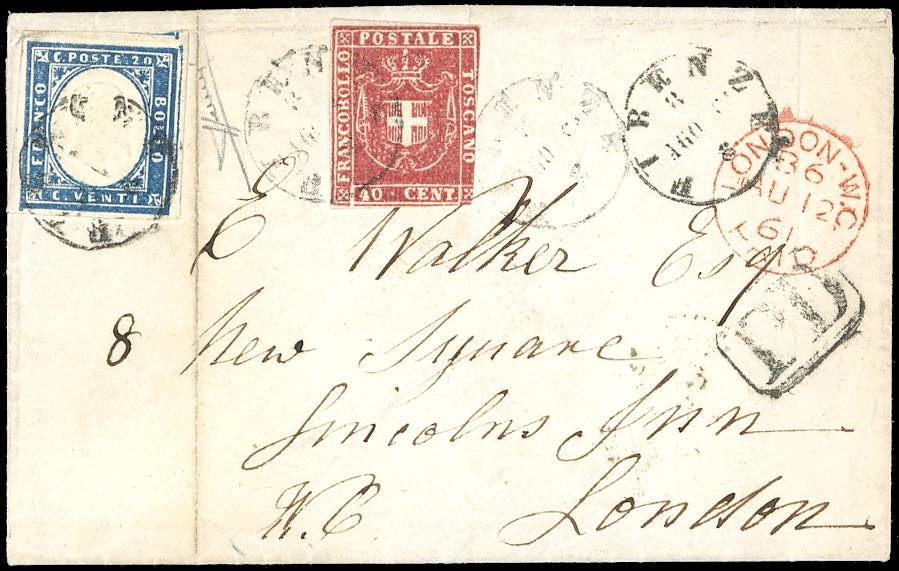 C. POSTE 20
FRANCO
BOLLO
C. VENTI
POSTALE
FRANCOBOLLO
TOSCANO
40 CENT
FIRENZE
8
AGO
FIRENZE
8
AGO
LONDON-W.C
B6
AU 12
61
PAID
PD
E Walker Esq
8 New Square
Lincolns Inn
W.C London